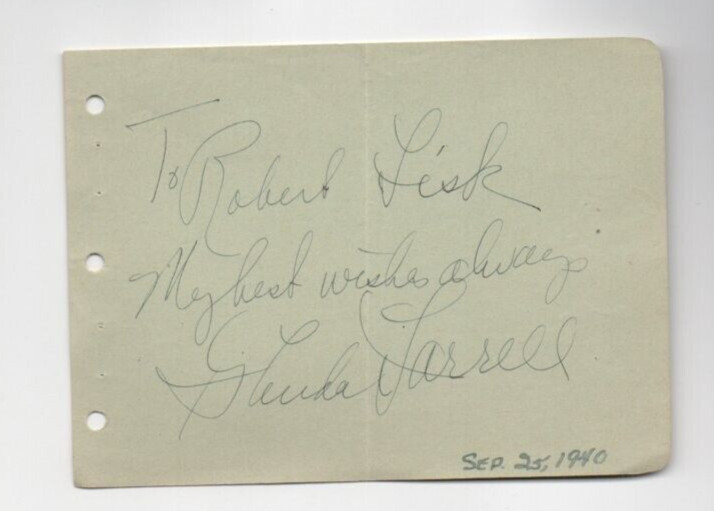 To Robert Lisk
My best wishes always
Glenda Farrell
SEP. 25, 1940